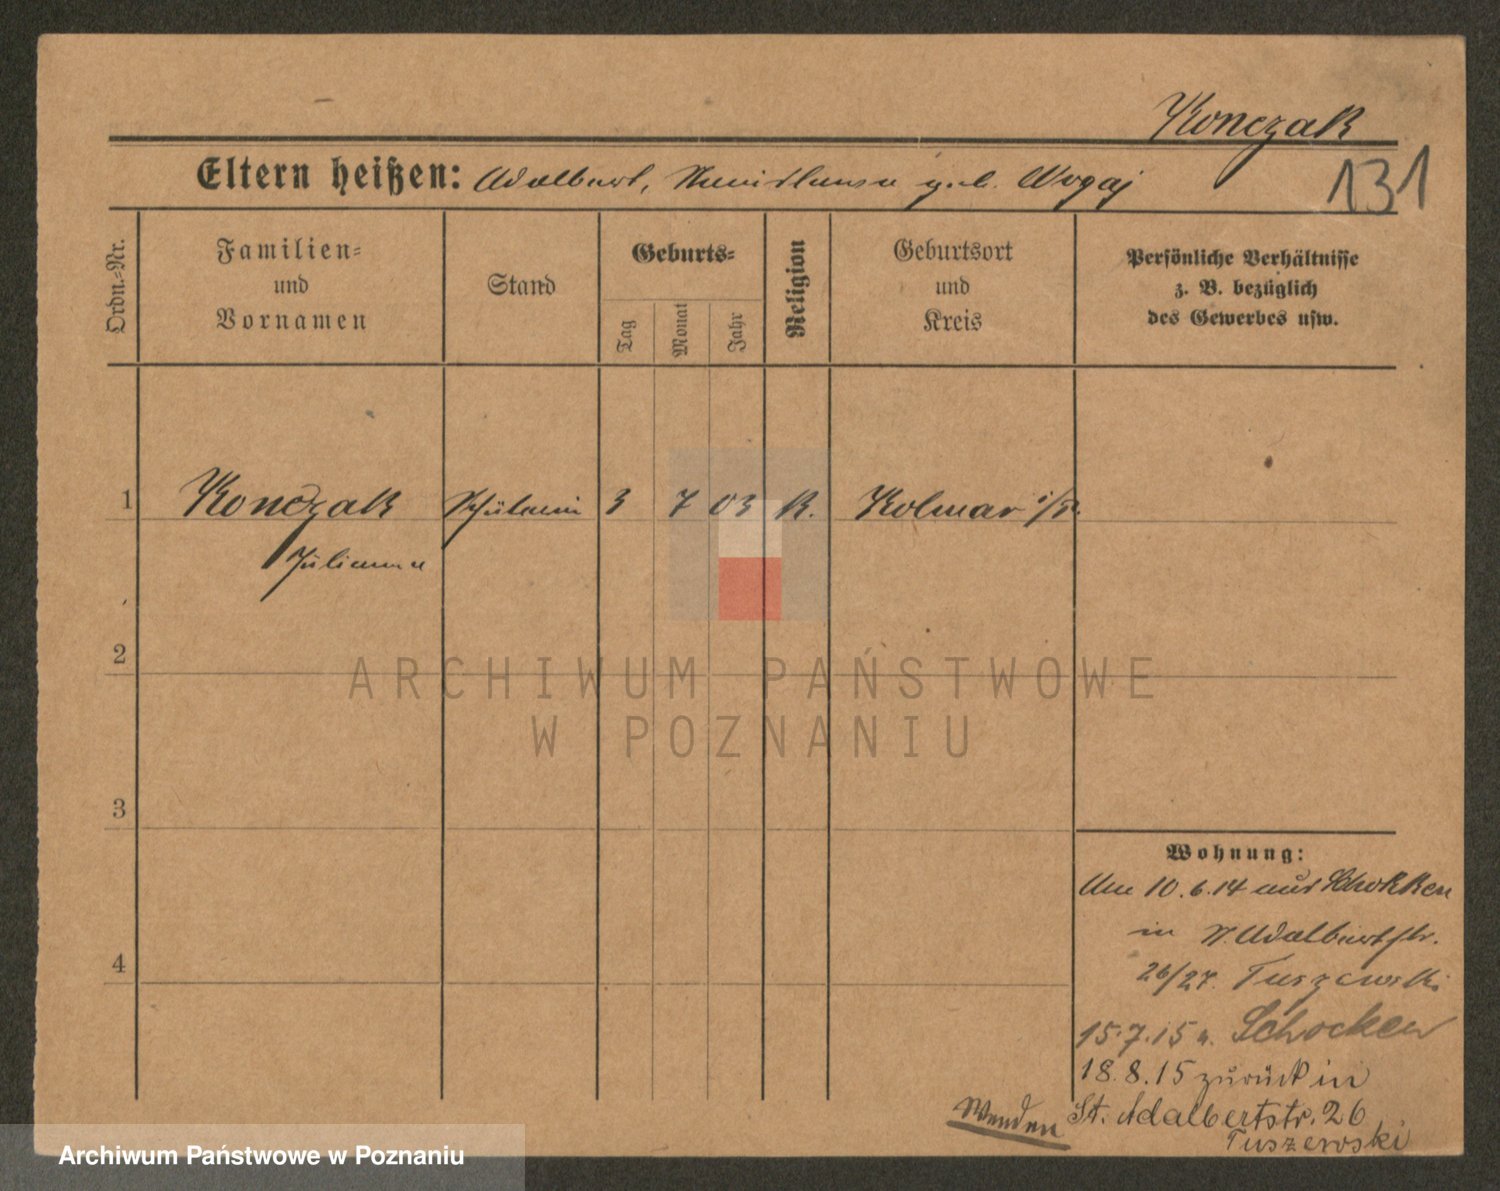 Konczak
131
Eltern heißen: Adalbert, Stanislawa geb. Wogaj
Ordn.-Nr.
Familien-
und
Vornamen
Stand
Geburts-
Tag
Monat
Jahr
Religion
Geburtsort
und
Kreis
Persönliche Verhältnisse
z. B. bezüglich
des Gewerbes usw.
1 Konczak Schülerin 3 7 03 K. Kolmar i/P.
Julianna
2
3
4
Wohnung:
Am 10.6.14 aus Schokken
in St. Adalbertstr.
26/27. Tuszewski
15.7.15 n. Schocken
18.8.15 zurück in
St. Adalbertstr. 26
Tuszewski
Wenden
ARCHIWUM PAŃSTWOWE
W POZNANIU
Archiwum Państwowe w Poznaniu